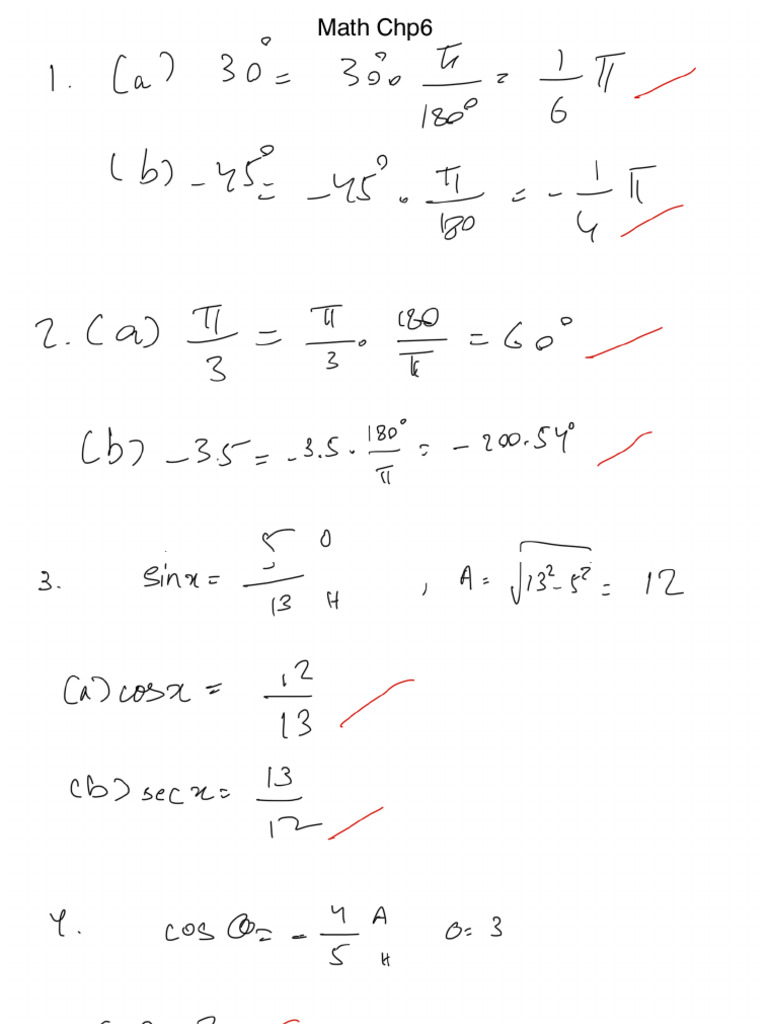 Math Chp6
1. (a) 30° = 30° · π/180° = 1/6 π
(b) -45° = -45° · π/180 = -1/4 π
2. (a) π/3 = π/3 · 180/π = 60°
(b) -3.5 = -3.5 · 180°/π = -200.54°
3. sin x = 5/13 O H , A = √13²-5² = 12
(a) cos x = 12/13
(b) sec x = 13/12
4. cos θ = -4/5 A H O = 3